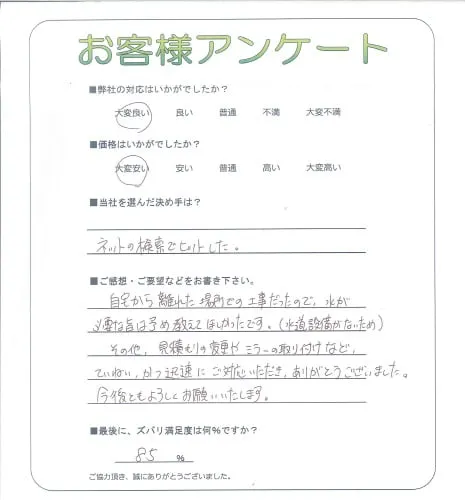 お客様アンケート
■弊社の対応はいかがでしたか？
大変良い 良い 普通 不満 大変不満
■価格はいかがでしたか？
大変安い 安い 普通 高い 大変高い
■当社を選んだ決め手は？
ネットの検索でヒットした。
■ご感想・ご要望などをお書き下さい。
自宅から離れた場所での工事だったので、水が
必要な旨は予め教えてほしかったです。(水道設備がないため)
その他、見積もりの変更やミラーの取り付けなど、
ていねい、かつ迅速にご対応いただき、ありがとうございました。
今後ともよろしくお願いいたします。
■最後に、ズバリ満足度は何%ですか？
85 %
ご協力頂き、誠にありがとうございました。